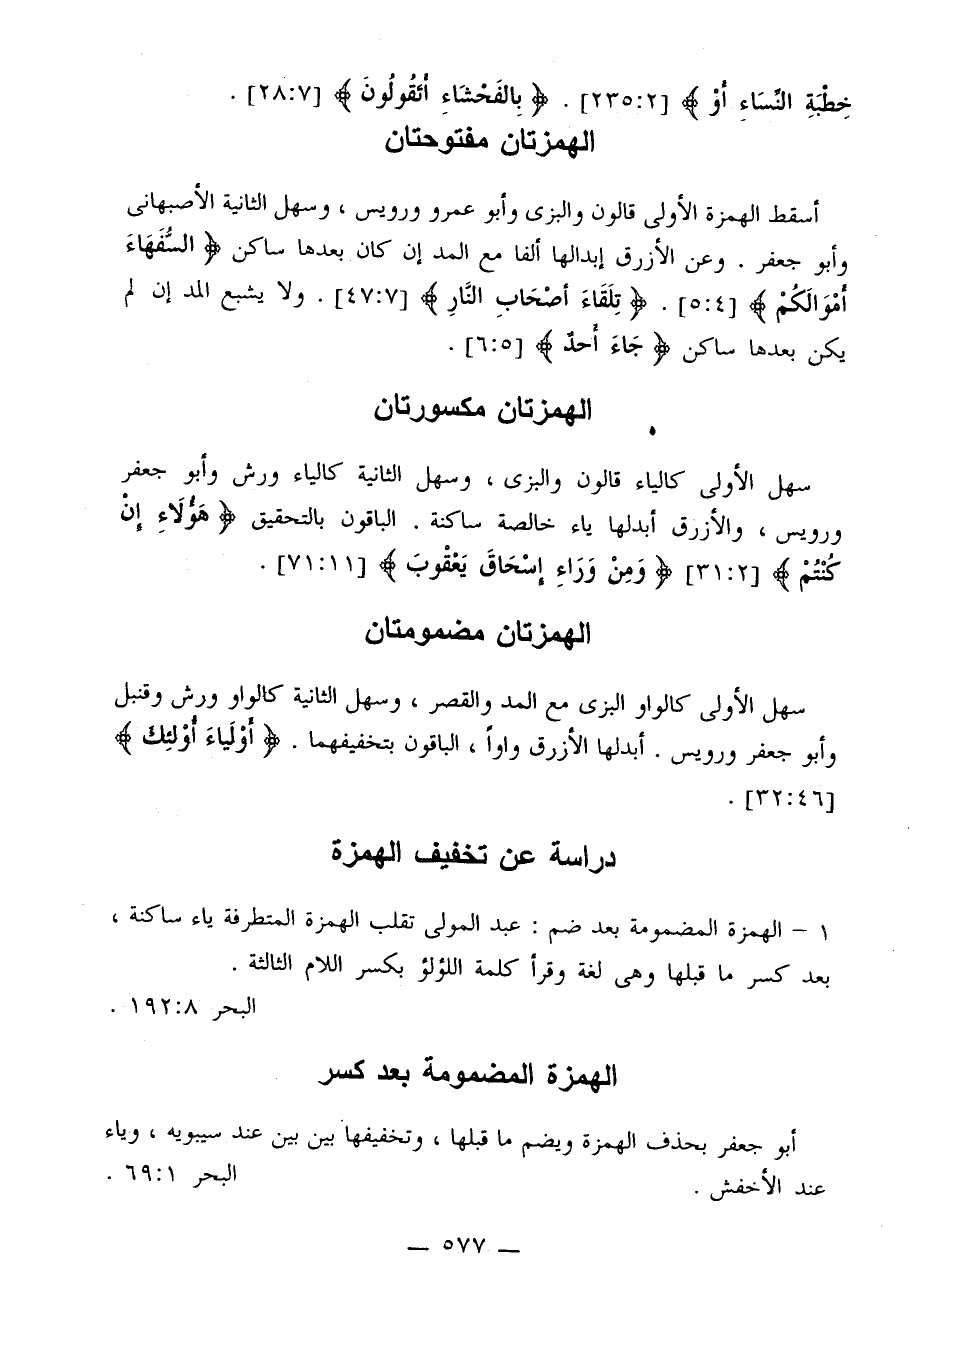 خِطْبَةِ النِّسَاءِ أَوْ ﴾ [٢٣٥:٢] . ﴿ بِالفَحْشَاءِ أَتَقُولُونَ ﴾ [٢٨:٧] .
الهمزتان مفتوحتان
أسقط الهمزة الأولى قالون والبزى وأبو عمرو ورويس ، وسهل الثانية الأصبهانى
وأبو جعفر . وعن الأزرق إبدالها ألفا مع المد إن كان بعدها ساكن ﴿ السُّفَهَاءَ
أَمْوَالَكُمْ ﴾ [٥:٤] . ﴿ تِلْقَاءَ أصْحَابِ النَّارِ ﴾ [٤٧:٧] . ولا يشبع المد إن لم
يكن بعدها ساكن ﴿ جَاءَ أَحدٌ ﴾ [٦:٥] .
الهمزتان مكسورتان
سهل الأولى كالياء قالون والبزى ، وسهل الثانية كالياء ورش وأبو جعفر
ورويس ، والأزرق أبدلها ياء خالصة ساكنة . الباقون بالتحقيق ﴿ هَؤُلَاءِ إِنْ
كُنْتُمْ ﴾ [٣١:٢] ﴿ وَمِنْ وَرَاءِ إِسْحَاقَ يَعْقُوبَ ﴾ [٧١:١١] .
الهمزتان مضمومتان
سهل الأولى كالواو البزى مع المد والقصر ، وسهل الثانية كالواو ورش وقنبل
وأبو جعفر ورويس . أبدلها الأزرق واواً ، الباقون بتخفيفهما . ﴿ أَوْلَياءَ أُوْلئِكَ ﴾
[٣٢:٤٦] .
دراسة عن تخفيف الهمزة
١ – الهمزة المضمومة بعد ضم : عبد المولى تقلب الهمزة المتطرفة ياء ساكنة ،
بعد كسر ما قبلها وهى لغة وقرأ كلمة اللؤلؤ بكسر اللام الثالثة .
البحر ١٩٢:٨ .
الهمزة المضمومة بعد كسر
أبو جعفر بحذف الهمزة ويضم ما قبلها ، وتخفيفها بين بين عند سيبويه ، وياء
عند الأخفش . البحر ٦٩:١ .
— ٥٧٧ —